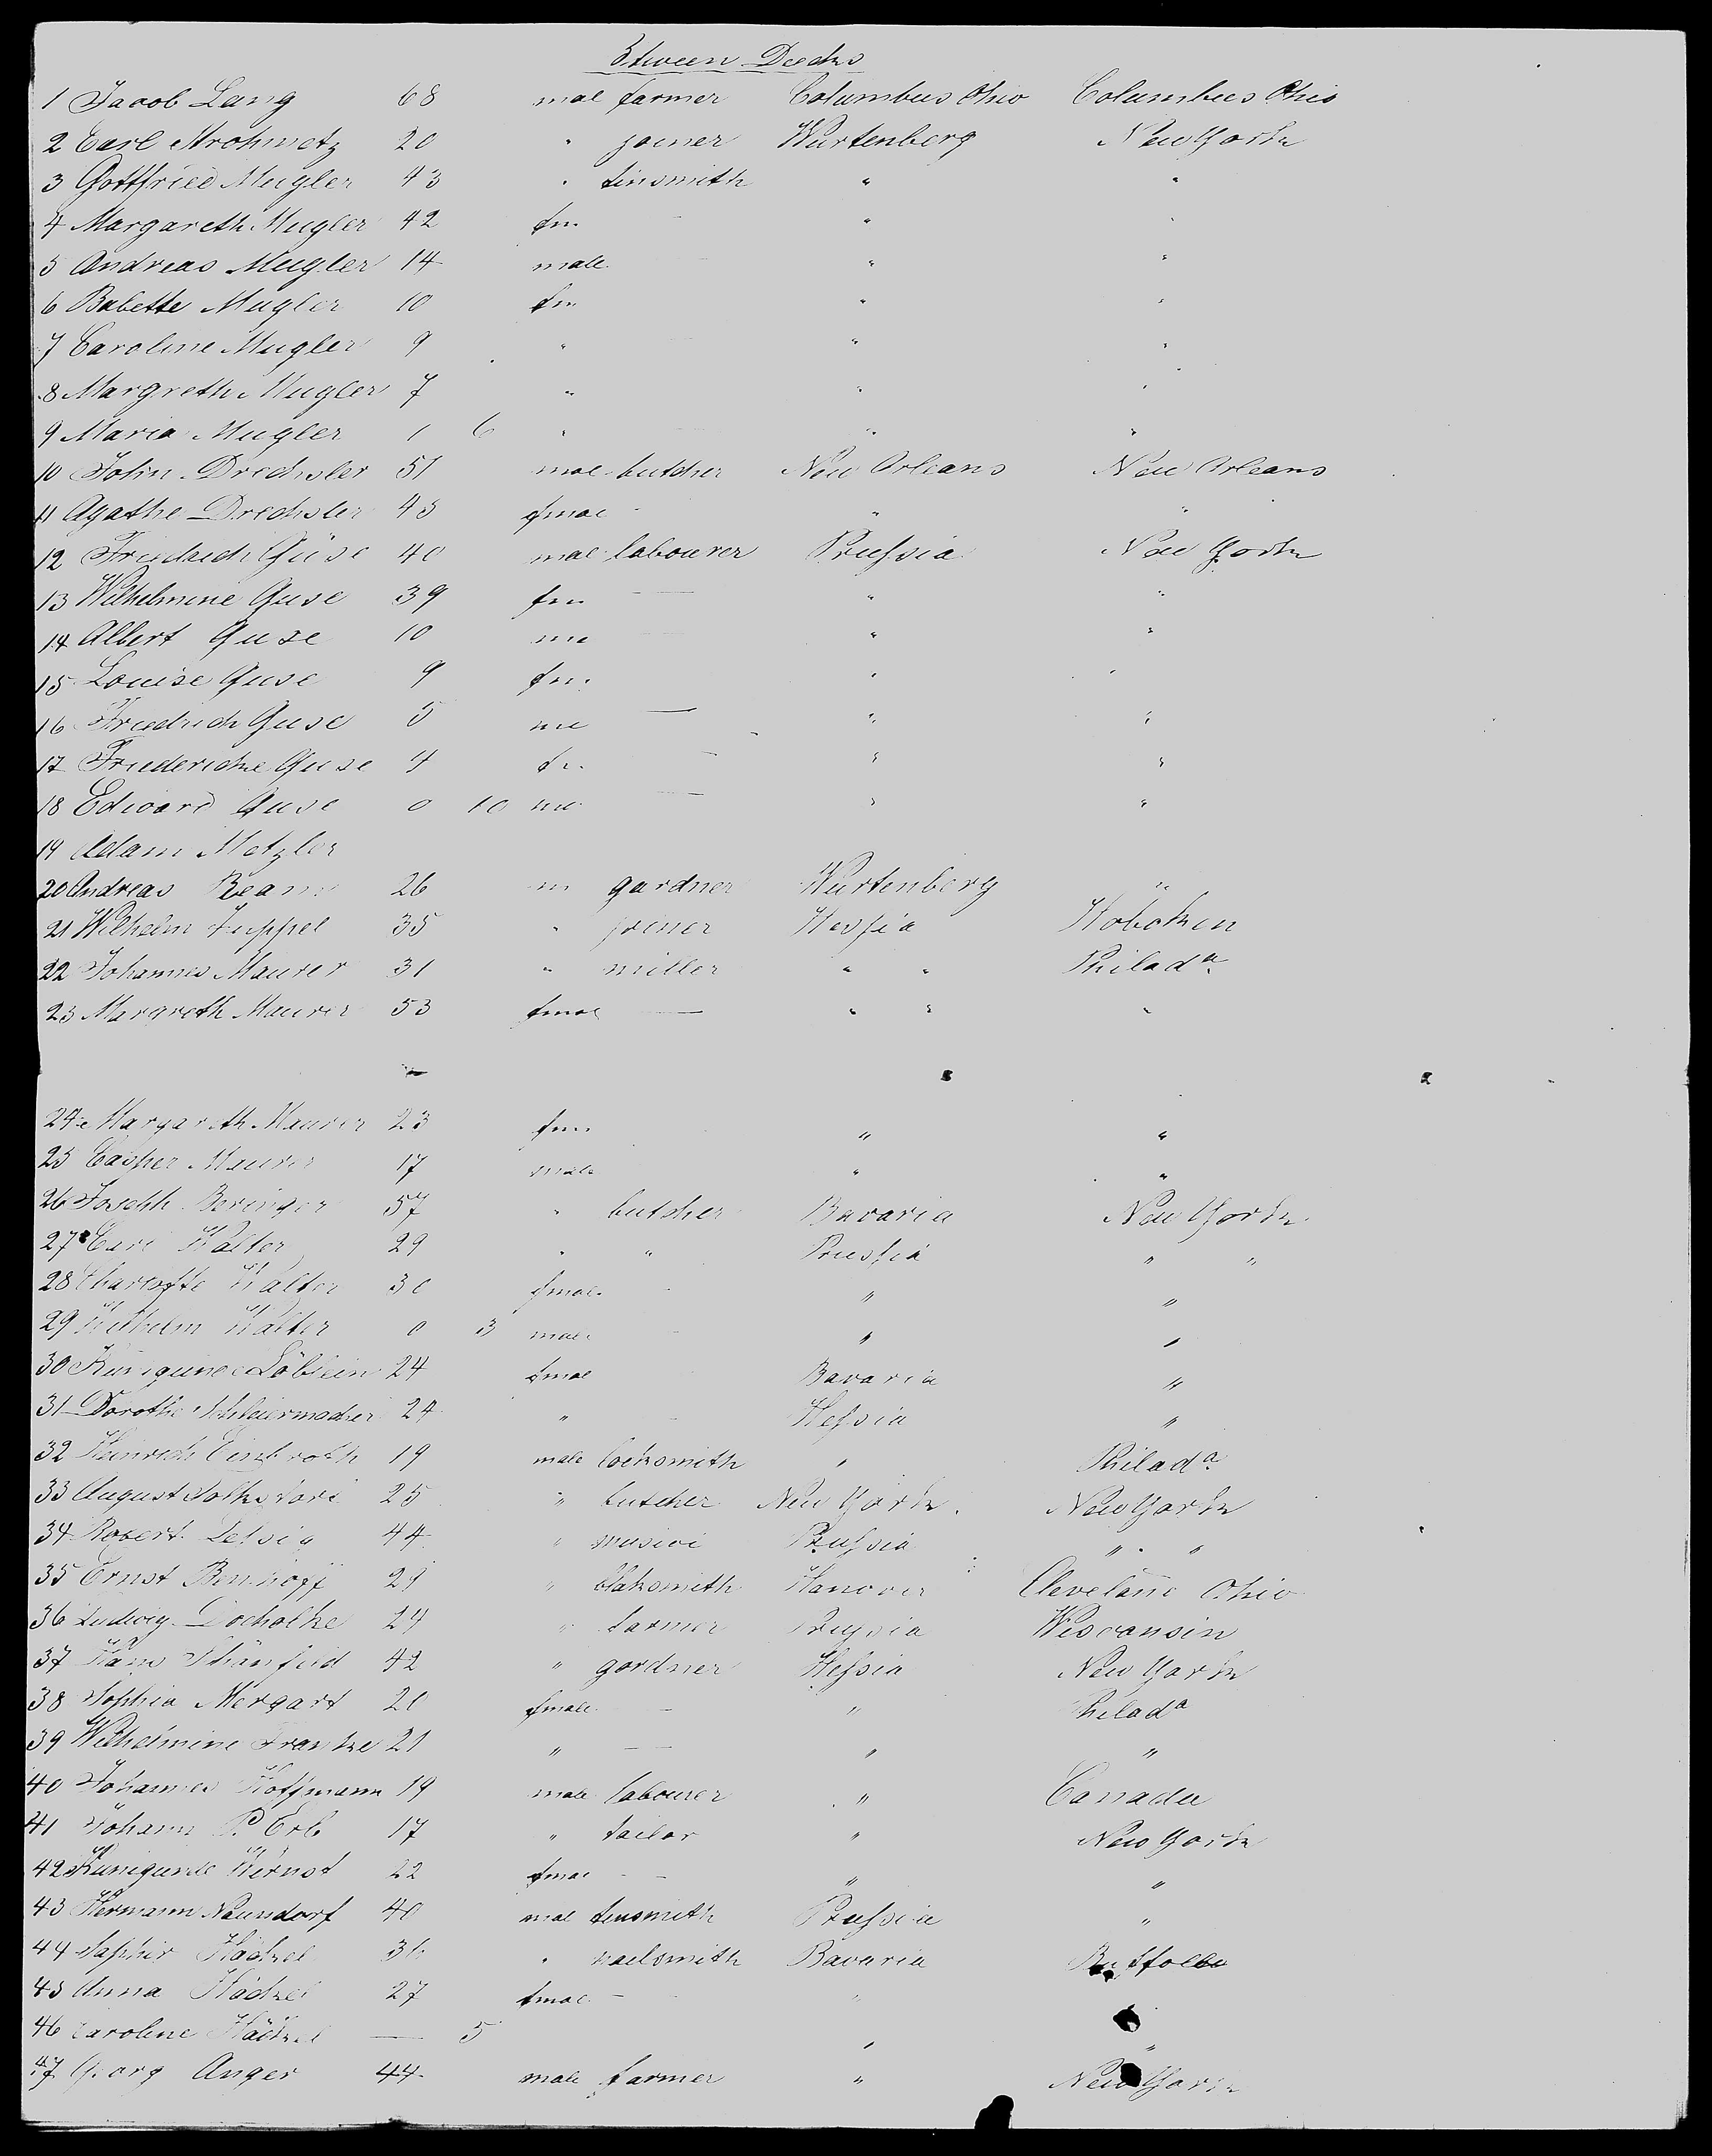 Btween Decks
1 Jacob Lang 68 mal farmer Columbus Ohio Columbus Ohio
2 Carl Strohmetz 20 " joiner Wurtenberg New York
3 Gottfried Mugler 43 " tinsmith " "
4 Margareth Mugler 42 fm " "
5 Andreas Mugler 14 male " "
6 Babette Mugler 10 fm " "
7 Caroline Mugler 9 " " "
8 Margreth Mugler 7 " " "
9 Maria Mugler 1 6 " " "
10 John Drechsler 51 mal butcher New Orleans New Orleans
11 Agathe Drechsler 43 fmal " "
12 Friedrich Güse 40 mal labourer Prussia New York
13 Wilhelmine Guse 39 fm — " "
14 Albert Guse 10 ma " "
15 Louise Guse 9 fm " "
16 Friedrich Guse 5 ma — " "
17 Friedericke Guse 4 fm — " "
18 Edward Guse 0 10 ma — " "
19 Adam Metzler
20 Andreas Beam 26 m gardner Wurtenberg "
21 Wilhelm Juppel 35 " joiner Hessia Hoboken
22 Johannes Maurer 31 " miller " " Philada
23 Margreth Maurer 53 fmal — " " "
24 Margareth Maurer 23 fm " "
25 Casper Maurer 17 male " "
26 Joseph Beringer 57 " butcher Bavaria New York
27 Carl Walter 29 " " Prussia " "
28 Charlotte Walter 30 fmal " "
29 Wilhelm Walter 0 3 male " "
30 Kunigunde Löblein 24 fmal Bavaria "
31 Dorothe Schleiermacher 24 " Hessia "
32 Heinrich Einbroth 19 male locksmith " Philada
33 August Volksdorf 25 " butcher New York New York
34 Robert 44 " musici Prussia " "
35 Ernst Benkhoff 29 " blaksmith Hanover Cleveland Ohio
36 Ludwig 24 " farmer Prussia Wisconsin
37 Hans Schönfeld 42 " gardner Hessia New York
38 Sophia Mergart 20 fmale — " Philada
39 Wilhelmine Franke 21 " — " "
40 Johannes Hoffmann 19 male labourer " Canada
41 Johann P. Erb 17 " tailor " New York
42 Kunigunde Wernst 22 fmal — " "
43 Hermann Neundorf 40 mal tinsmith Prussia "
44 Häckel 36 " nailsmith Bavaria Buffolo
45 Anna Häckel 27 fmal — "
46 Caroline Häckel — 5 " "
47 Georg Anger 44 male farmer " New York